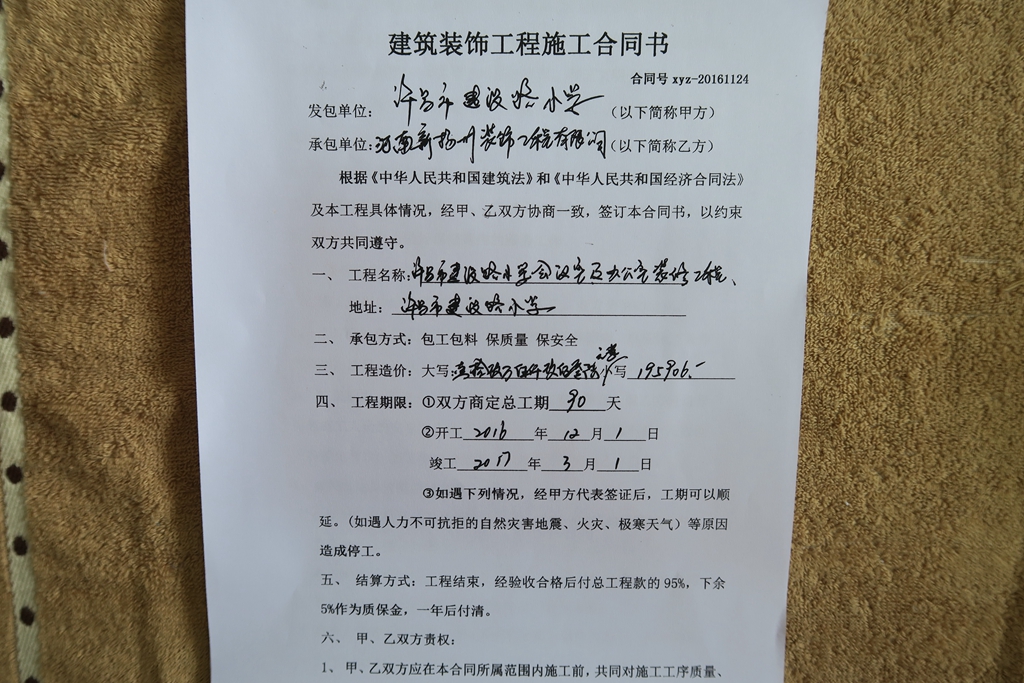 建筑装饰工程施工合同书
合同号 xyz-20161124
发包单位：许昌市建设路小学（以下简称甲方）
承包单位：河南新扬州装饰工程有限公司（以下简称乙方）
根据《中华人民共和国建筑法》和《中华人民共和国经济合同法》
及本工程具体情况，经甲、乙双方协商一致，签订本合同书，以约束
双方共同遵守。
一、 工程名称：许昌市建设路小学会议室及办公室装修工程、
地址：许昌市建设路小学
二、 承包方式：包工包料 保质量 保安全
三、 工程造价：大写：小写 195906.-
四、 工程期限：①双方商定总工期 90 天
②开工 2016 年 12 月 1 日
竣工 2017 年 3 月 1 日
③如遇下列情况，经甲方代表签证后，工期可以顺
延。（如遇人力不可抗拒的自然灾害地震、火灾、极寒天气）等原因
造成停工。
五、 结算方式：工程结束，经验收合格后付总工程款的 95%，下余
5%作为质保金，一年后付清。
六、 甲、乙双方责权：
1、 甲、乙双方应在本合同所属范围内施工前，共同对施工工序质量、